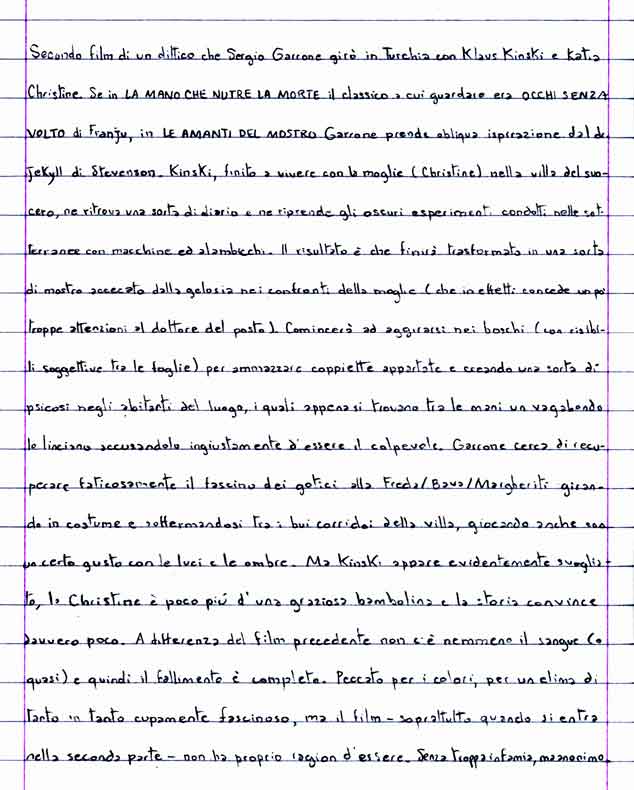 Secondo film di un dittico che Sergio Garrone girò in Turchia con Klaus Kinski e Katia
Christine. Se in LA MANO CHE NUTRE LA MORTE il classico a cui guardare era OCCHI SENZA
VOLTO di Franju, in LE AMANTI DEL MOSTRO Garrone prende obliqua ispirazione dal dr
Jekyll di Stevenson. Kinski, finito a vivere con la moglie (Christine) nella villa del suo-
cero, ne ritrova una sorta di diario e ne riprende gli oscuri esperimenti condotti nelle sot-
terranee con macchine ed alambicchi. Il risultato è che finirà trasformato in una sorta
di mostro accecato dalla gelosia nei confronti della moglie (che in effetti concede un po'
troppe attenzioni al dottore del posto). Comincerà ad aggirarsi nei boschi (con risibi-
li soggettive tra le foglie) per ammazzare coppiette appartate e creando una sorta di
psicosi negli abitanti del luogo, i quali appena si trovano tra le mani un vagabondo
lo linciano accusandolo ingiustamente d'essere il colpevole. Garrone cerca di recu-
perare faticosamente il fascino dei gotici alla Freda/Bava/Margheriti giran-
do in costume e soffermandosi tra i bui corridoi della villa, giocando anche con
un certo gusto con le luci e le ombre. Ma Kinski appare evidentemente svoglia-
to, la Christine è poco piú d'una graziosa bambolina e la storia convince
davvero poco. A differenza del film precedente non c'è nemmeno il sangue (o
quasi) e quindi il fallimento è completo. Peccato per i colori, per un clima di
tanto in tanto cupamente fascinoso, ma il film - soprattutto quando si entra
nella seconda parte - non ha proprio ragion d'essere. Senza troppa infamia, ma anonimo.